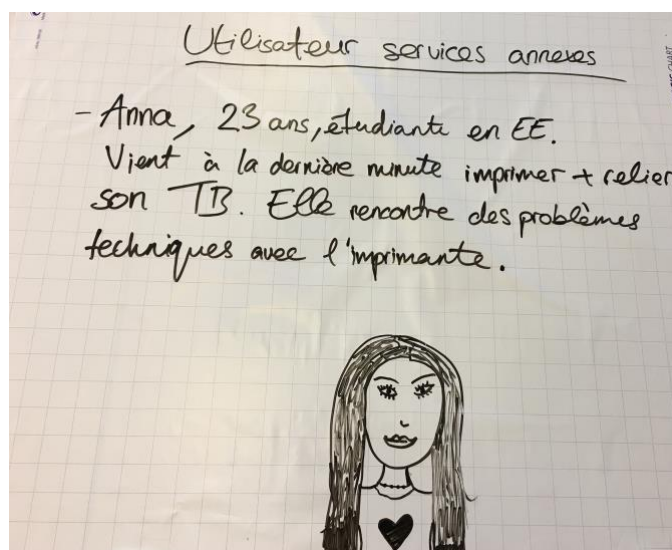 Utilisateur services annexes
- Anna, 23 ans, étudiante en EE.
Vient à la dernière minute imprimer + relier
son TB. Elle rencontre des problèmes
techniques avec l'imprimante.